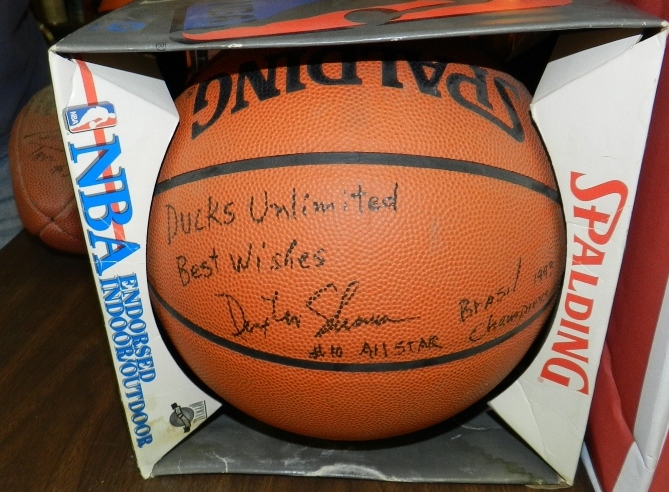 SPALDING
NBA
NBA
ENDORSED
INDOOR/OUTDOOR
Ducks Unlimited
Best Wishes
#10 All STAR
Brasil
Champions
SPALDING